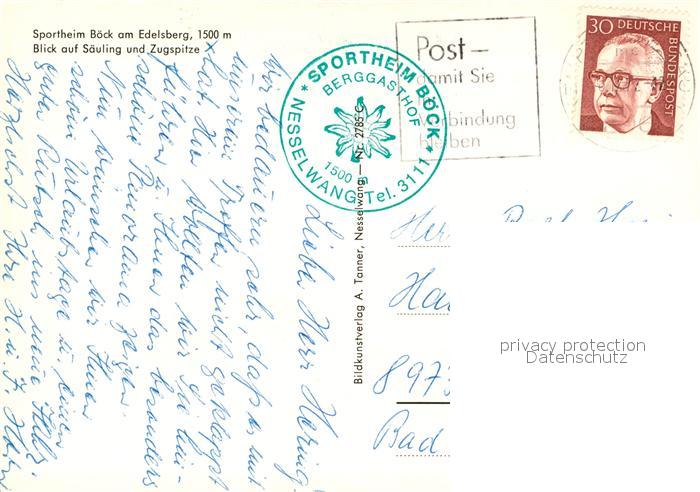 Sportheim Böck am Edelsberg, 1500 m
Blick auf Säuling und Zugspitze
SPORTHEIM BÖCK
BERGGASTHOF
1500 m
NESSELWANG Tel. 3111
Post-
damit Sie
in Verbindung
bleiben
30 DEUTSCHE
BUNDESPOST
Bildkunstverlag A. Tanner, Nesselwang — Nr. 2785 C
Lieber Herr Hering
Wir bedauern sehr, daß es mit
unserem Treffen nicht geklappt
hat. Hier wollten wir Sie hin-
führen u. Ihnen das besonders
schöne Panorama zeigen.
Nun wünschen wir Ihnen
schöne Urlaubstage u. einen
guten Rutsch ins neue Jahr.
Herzlichst Ihre H. u. F.
Herr
8973
Bad
privacy protection
Datenschutz